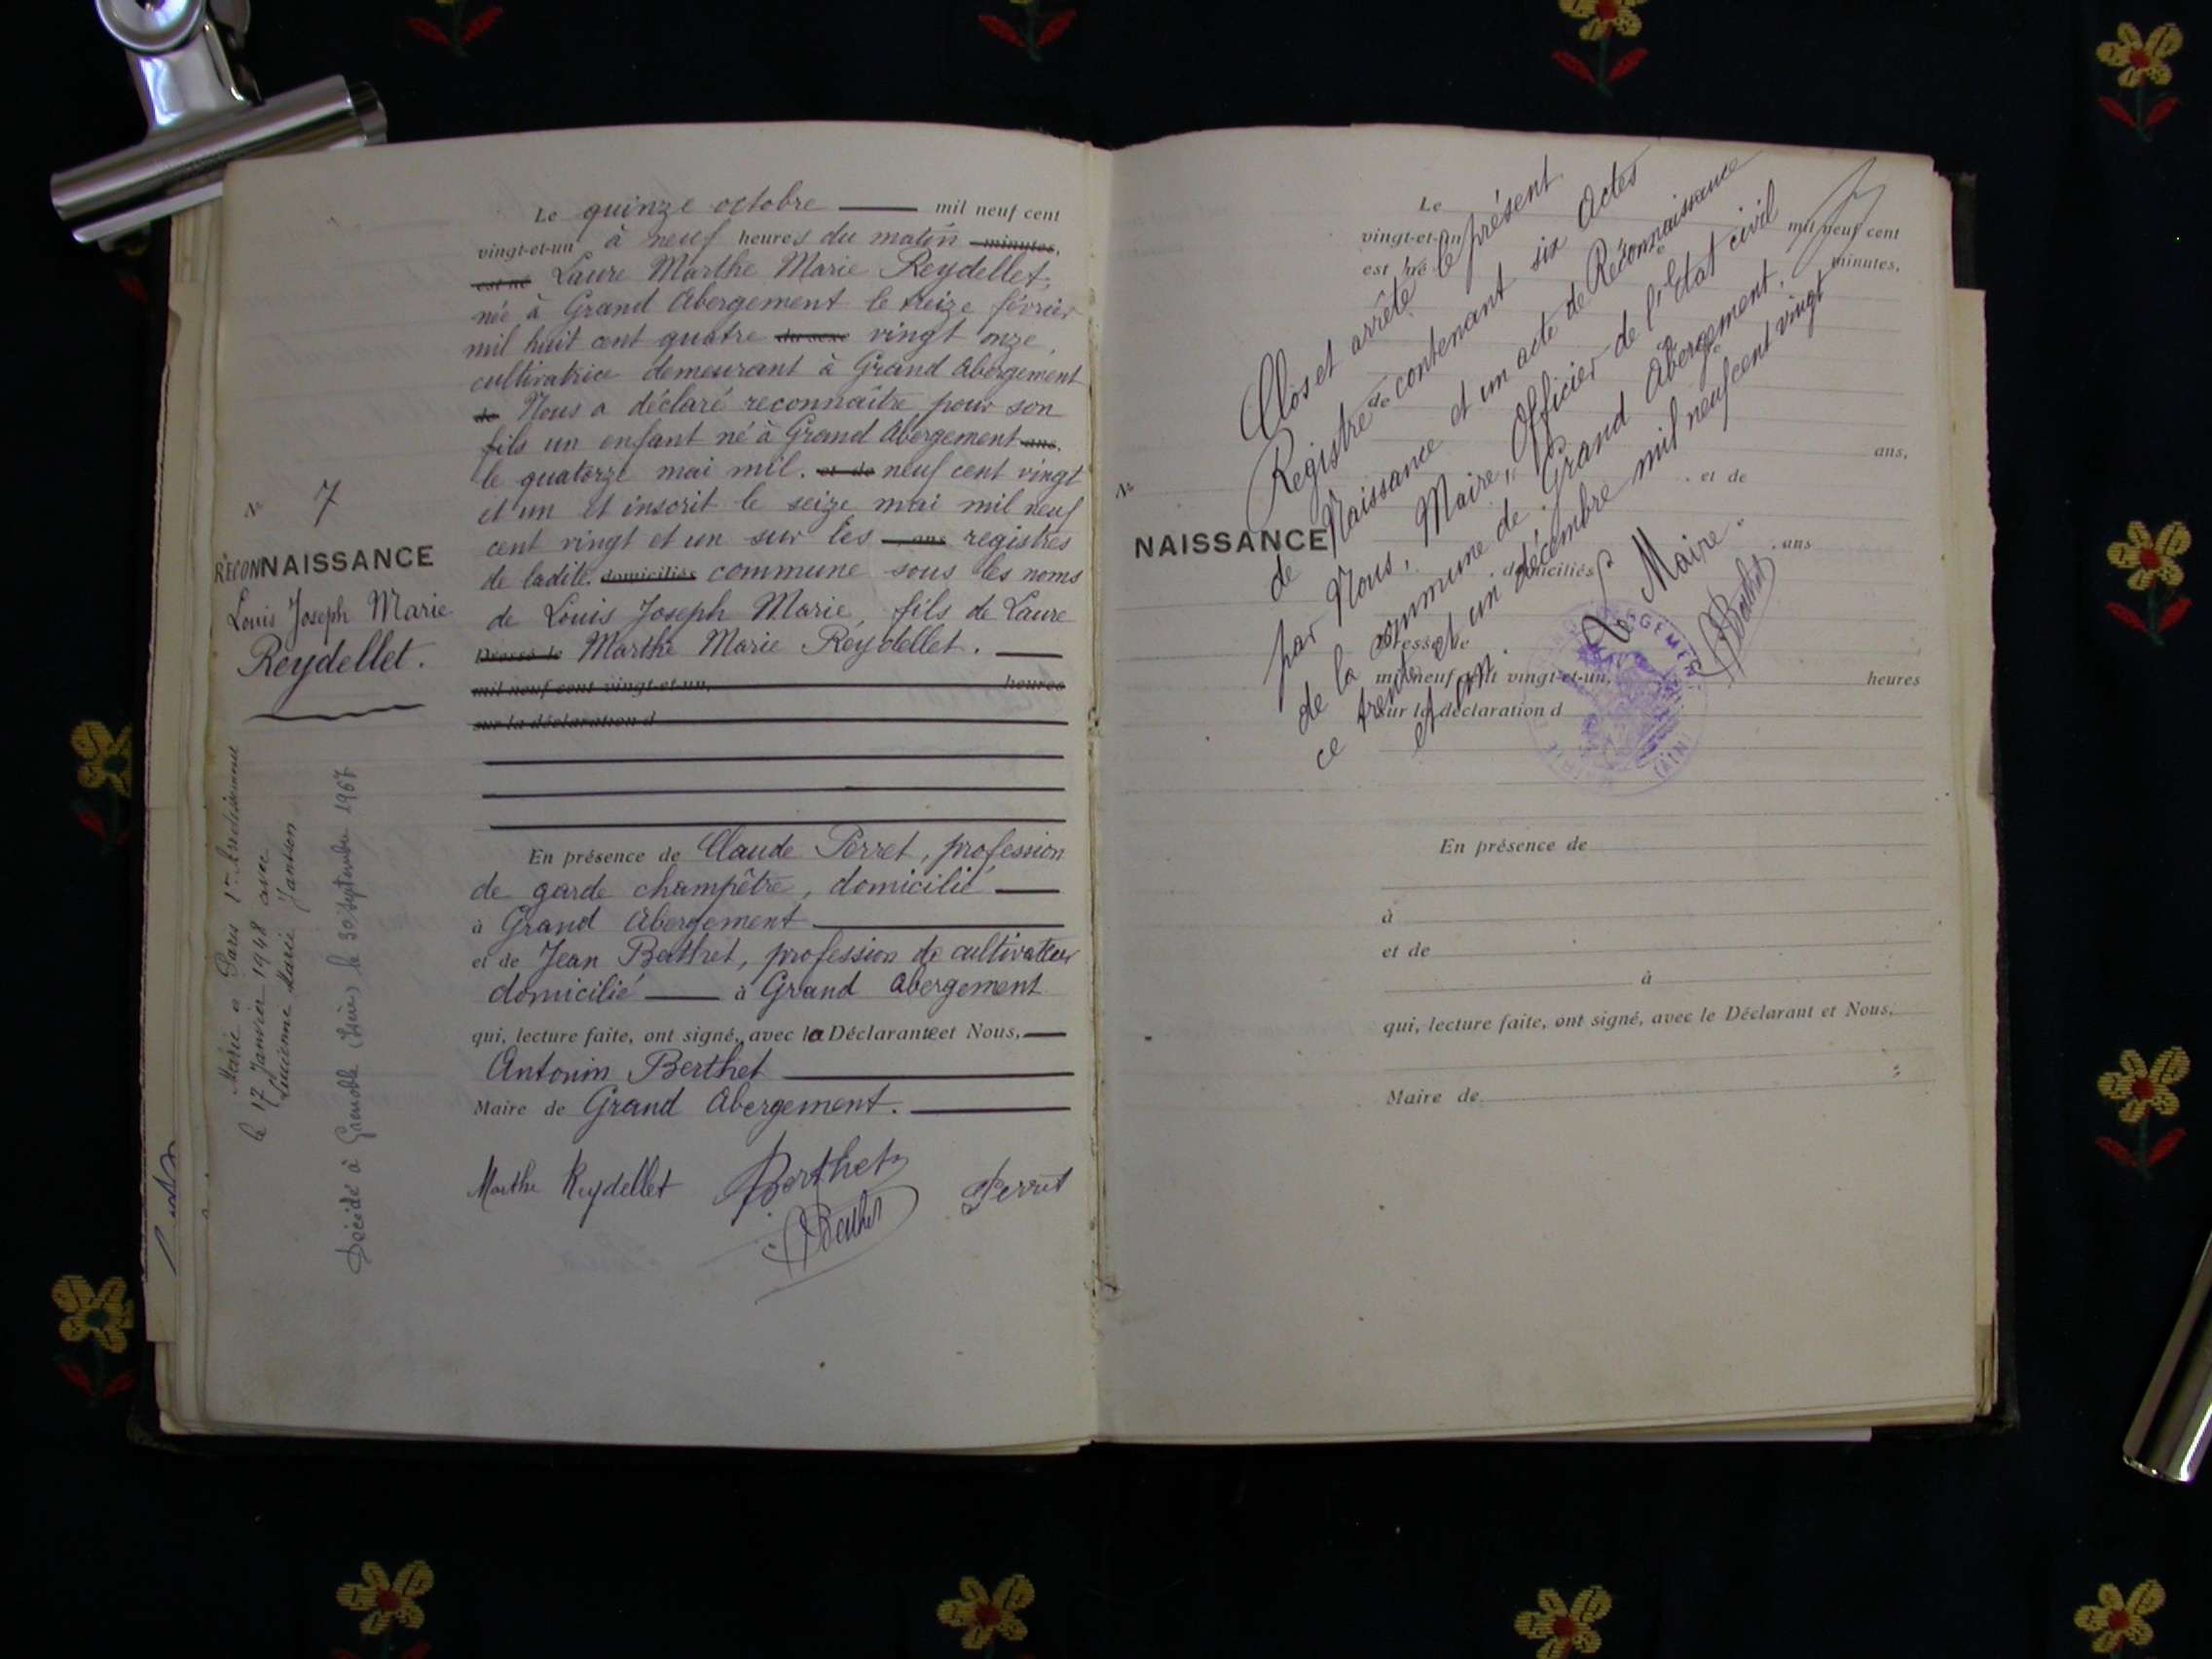 Le quinze octobre mil neuf cent
vingt-et-un à neuf heures du matin minutes,
est né Laure Marthe Marie Reydellet,
née à Grand Abergement le treize février
mil huit cent quatre du sexe vingt onze,
cultivatrice demeurant à Grand Abergement
de Nous a déclaré reconnaître pour son
fils un enfant né à Grand Abergement ans,
le quatorze mai mil. et de neuf cent vingt
et un et inscrit le seize mai mil neuf
cent vingt et un sur les ans registres
de ladite. domiciliés commune sous les noms
de Louis Joseph Marie, fils de Laure
Dressé le Marthe Marie Reydellet.
mil neuf cent vingt-et-un, heures
sur la déclaration d
En présence de Claude Perret, profession
de garde champêtre, domicilié
à Grand Abergement
et de Jean Berthet, profession de cultivateur
domicilié à Grand Abergement
qui, lecture faite, ont signé, avec la Déclarante et Nous,
Antonin Berthet
Maire de Grand Abergement.
Marthe Reydellet Berthet Perret
Berthet
N° 7
RECONNAISSANCE
Louis Joseph Marie
Reydellet.
Marié à Paris 1er Arrondissement
le 17 Janvier 1948 avec
Lucienne Marie
Décédé à Grenoble (Isère) le 30 Septembre 1967
Clos et arrêté le présent
Registre contenant six Actes
de Naissance et un acte de Reconnaissance
par Nous, Maire, Officier de l'Etat civil
de la commune de Grand Abergement,
ce trente et un décembre mil neuf cent vingt
et un.
Le Maire.
Berthet
Le mil neuf cent
vingt-et-un minutes,
est né
de
ans,
et de
N°
NAISSANCE
ans
domiciliés
Dressé le
mil neuf cent vingt-et-un, heures
sur la déclaration d
En présence de
à
et de
à
qui, lecture faite, ont signé, avec le Déclarant et Nous,
Maire de